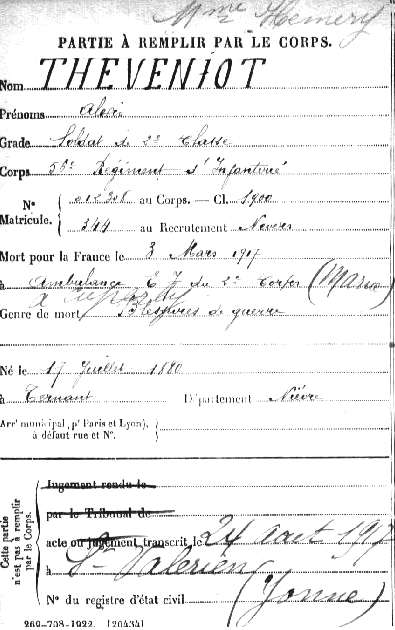 Mme Hemery
PARTIE À REMPLIR PAR LE CORPS.
Nom THEVENIOT
Prénoms
Grade Soldat de 2e Classe
Corps 56e Régiment d'Infanterie
N° Matricule. { 012308 au Corps. — Cl. 1900
344 au Recrutement Nevers
Mort pour la France le 3 Mars 1917
à Ambulance du 2e Corps (Marne)
Genre de mort Blessures de guerre
Né le 17 Juillet 1880
à Ternant Département Nièvre
Arrt municipal (pr Paris et Lyon),
à défaut rue et N°.
Cette partie n'est pas à remplir par le Corps.
Jugement rendu le
par le Tribunal de
acte ou jugement transcrit le 24 août 1917
à St Valérien (Yonne)
N° du registre d'état civil
269-708-1922. [20434]